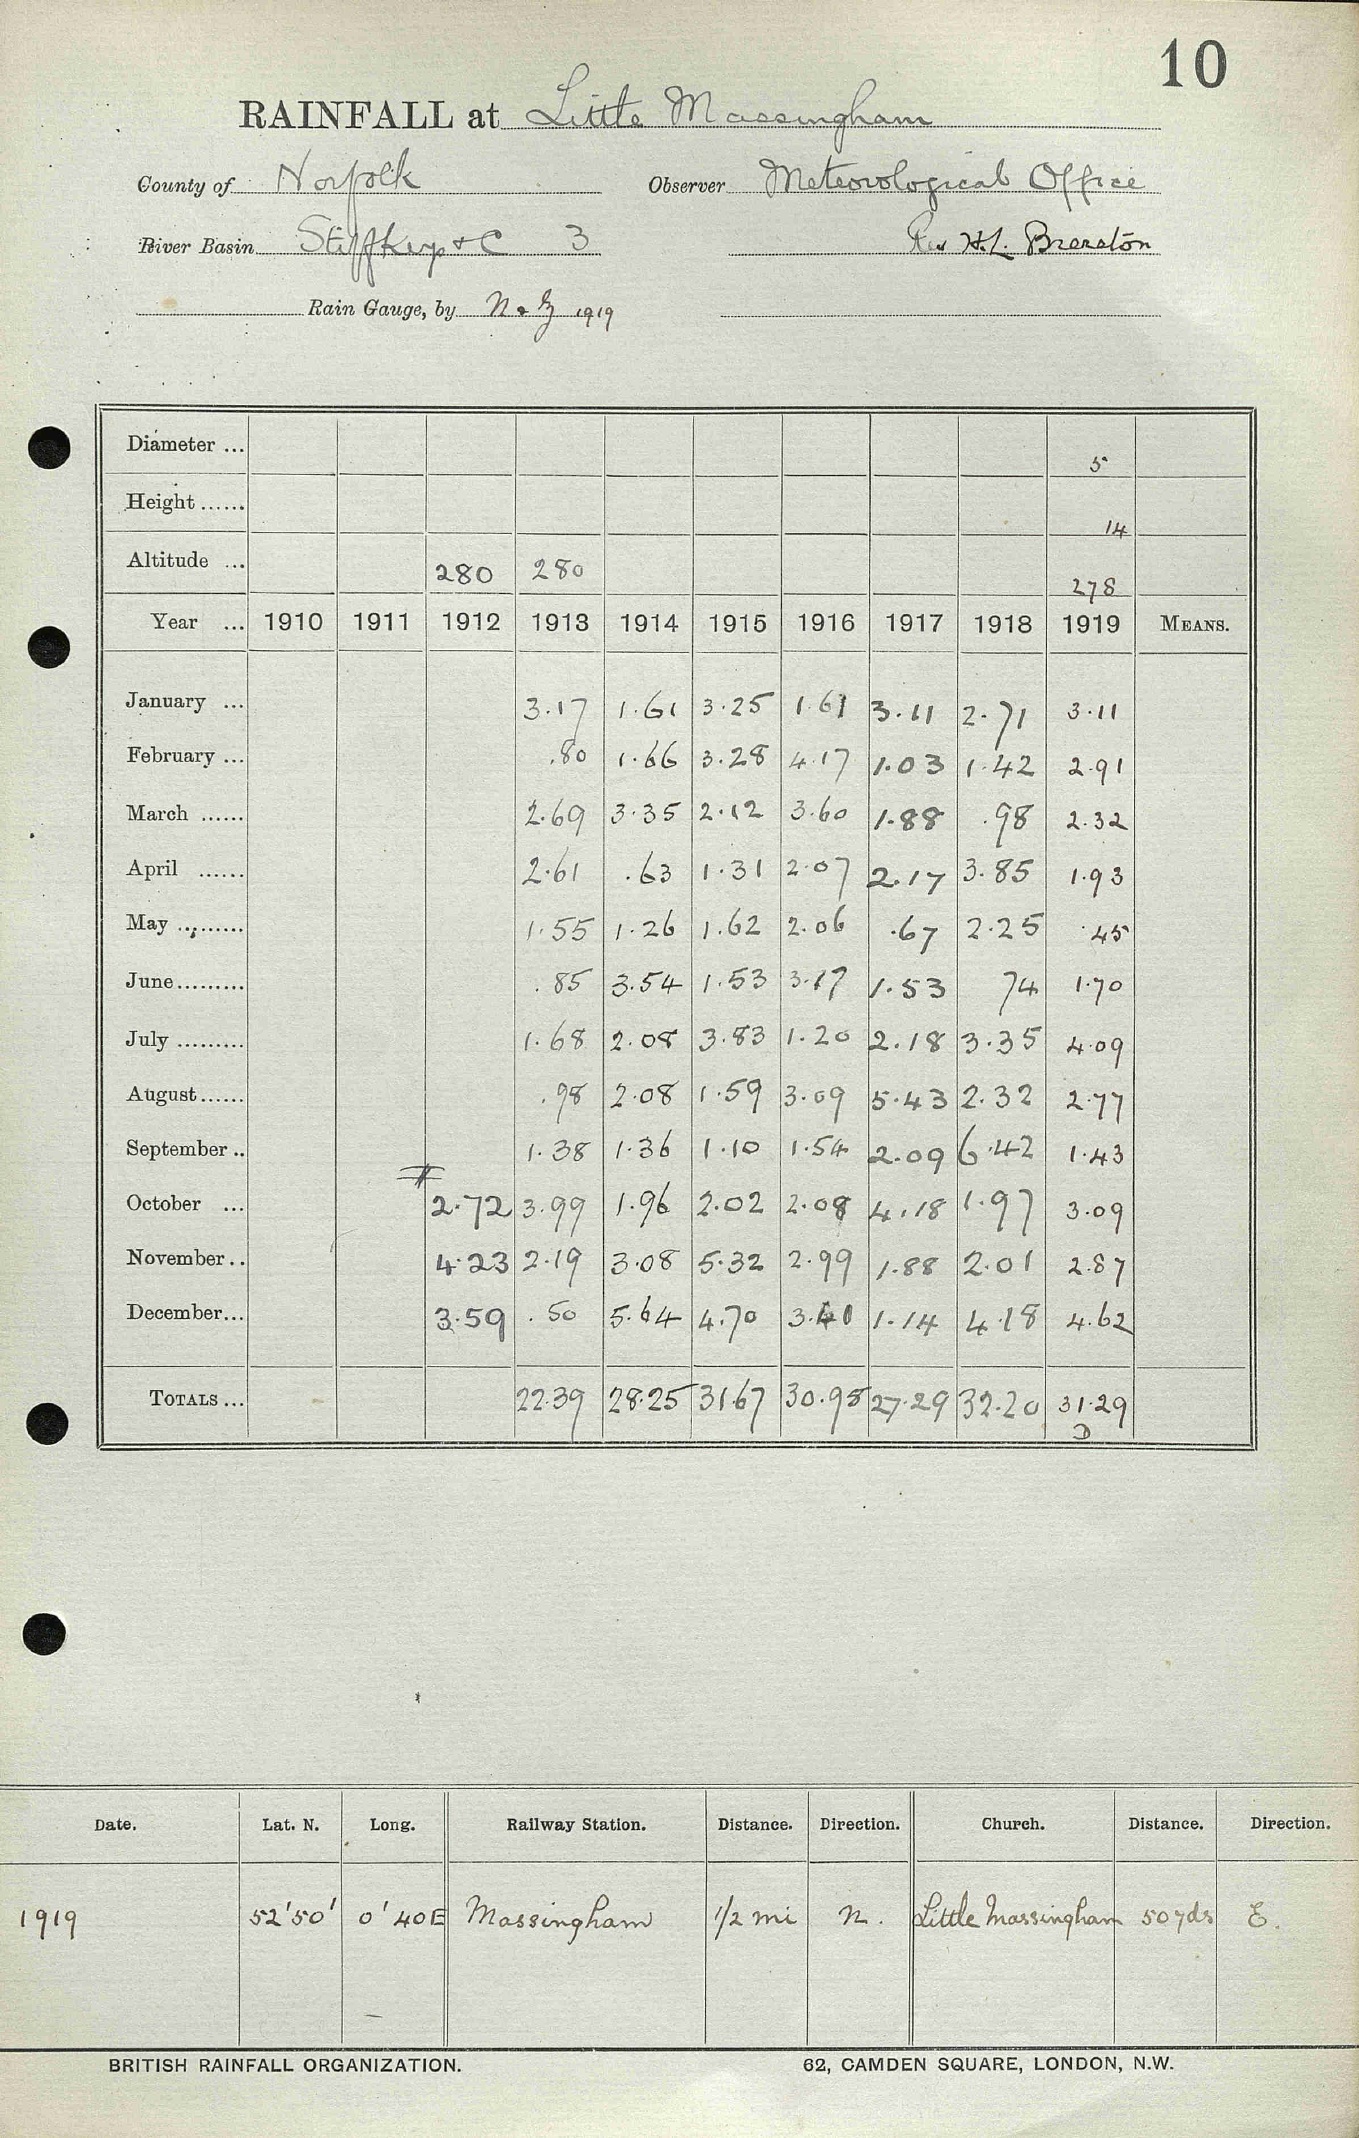 10
RAINFALL at Little Massingham
County of Norfolk Observer Meteorological Office
River Basin Stiffkey & C 3 Rev H.L. Brereton
Rain Gauge, by N & Z 1919
Diameter ... 5
Height ...... 14
Altitude ... 280 280 278
Year ... 1910 1911 1912 1913 1914 1915 1916 1917 1918 1919 MEANS.
January ... 3.17 1.61 3.25 1.61 3.11 2.71 3.11
February ... .80 1.66 3.28 4.17 1.03 1.42 2.91
March ...... 2.69 3.35 2.12 3.60 1.88 .98 2.32
April ...... 2.61 .63 1.31 2.07 2.17 3.85 1.93
May ......... 1.55 1.26 1.62 2.06 .67 2.25 .45
June......... .85 3.54 1.53 3.17 1.53 74 1.70
July ......... 1.68 2.08 3.83 1.20 2.18 3.35 4.09
August...... .98 2.08 1.59 3.09 5.43 2.32 2.77
September .. 1.38 1.36 1.10 1.54 2.09 6.42 1.43
October ... 2.72 3.99 1.96 2.02 2.08 4.18 1.97 3.09
November.. 4.23 2.19 3.08 5.32 2.99 1.88 2.01 2.87
December... 3.59 .50 5.64 4.70 1.14 4.18 4.62
TOTALS ... 22.39 28.25 31.67 30.98 27.29 32.20 31.29
D
Date. Lat. N. Long. Railway Station. Distance. Direction. Church. Distance. Direction.
1919 52'50' 0'40E Massingham 1/2 mi N. Little Massingham 50 yds E.
BRITISH RAINFALL ORGANIZATION. 62, CAMDEN SQUARE, LONDON, N.W.